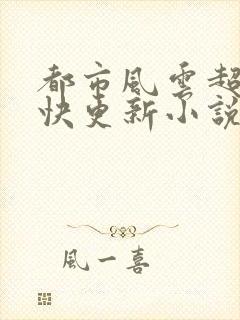 都市風雲超
快更新小説
風一喜